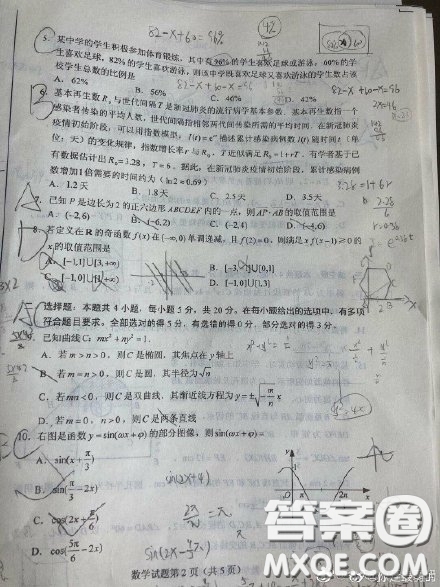 5. 某中学的学生积极参加体育锻炼，其中有96%的学生喜欢足球或游泳，60%的学
生喜欢足球，82%的学生喜欢游泳，则该中学既喜欢足球又喜欢游泳的学生数占该
校学生总数的比例是
A. 62%
B. 56%
C. 46%
D. 42%
82-x+60=96%
4%
82-x+x+60-x=96
6. 基本再生数R₀与世代间隔T是新冠肺炎的流行病学基本参数，基本再生数指一个
感染者传染的平均人数，世代间隔指相邻两代间传染所需的平均时间．在新冠肺炎
疫情初始阶段，可以用指数模型：I(t)=eʳᵗ描述累计感染病例数I(t)随时间t（单
位：天）的变化规律，指数增长率r与R₀，T近似满足R₀=1+rT．有学者基于已
有数据估计出R₀=3.28，T=6．据此，在新冠肺炎疫情初始阶段，累计感染病例
数增加1倍需要的时间约为（ln2≈0.69）
A. 1.2天
B. 1.8天
C. 2.5天
D. 3.5天
3.28=1+6r
7. 已知P是边长为2的正六边形ABCDEF内的一点，则AP·AB的取值范围是
A. (-2,6)
B. (-6,2)
C. (-2,4)
D. (-4,6)
8. 若定义在R的奇函数f(x)在(-∞,0)单调递减，且f(2)=0，则满足xf(x-1)≥0的
x的取值范围是
A. [-1,1]∪[3,+∞)
B. [-3,-1]∪[0,1]
C. [-1,0]∪[1,+∞)
D. [-1,0]∪[1,3]
选择题：本题共4小题，每小题5分，共20分．在每小题给出的选项中，有多项
符合题目要求．全部选对的得5分，有选错的得0分，部分选对的得3分．
已知曲线C：mx²+ny²=1．
A. 若m>n>0，则C是椭圆，其焦点在y轴上
B. 若m=n>0，则C是圆，其半径为√n
C. 若mn<0，则C是双曲线，其渐近线方程为y=±√(-m/n)x
D. 若m=0，n>0，则C是两条直线
10. 右图是函数y=sin(ωx+φ)的部分图像，则sin(ωx+φ)=
A. sin(x+π/3)
B. sin(π/3-2x)
C. cos(2x+π/6)
D. cos(5π/6-2x)
数学试题第2页（共5页）
答案圈
MXQE.COM